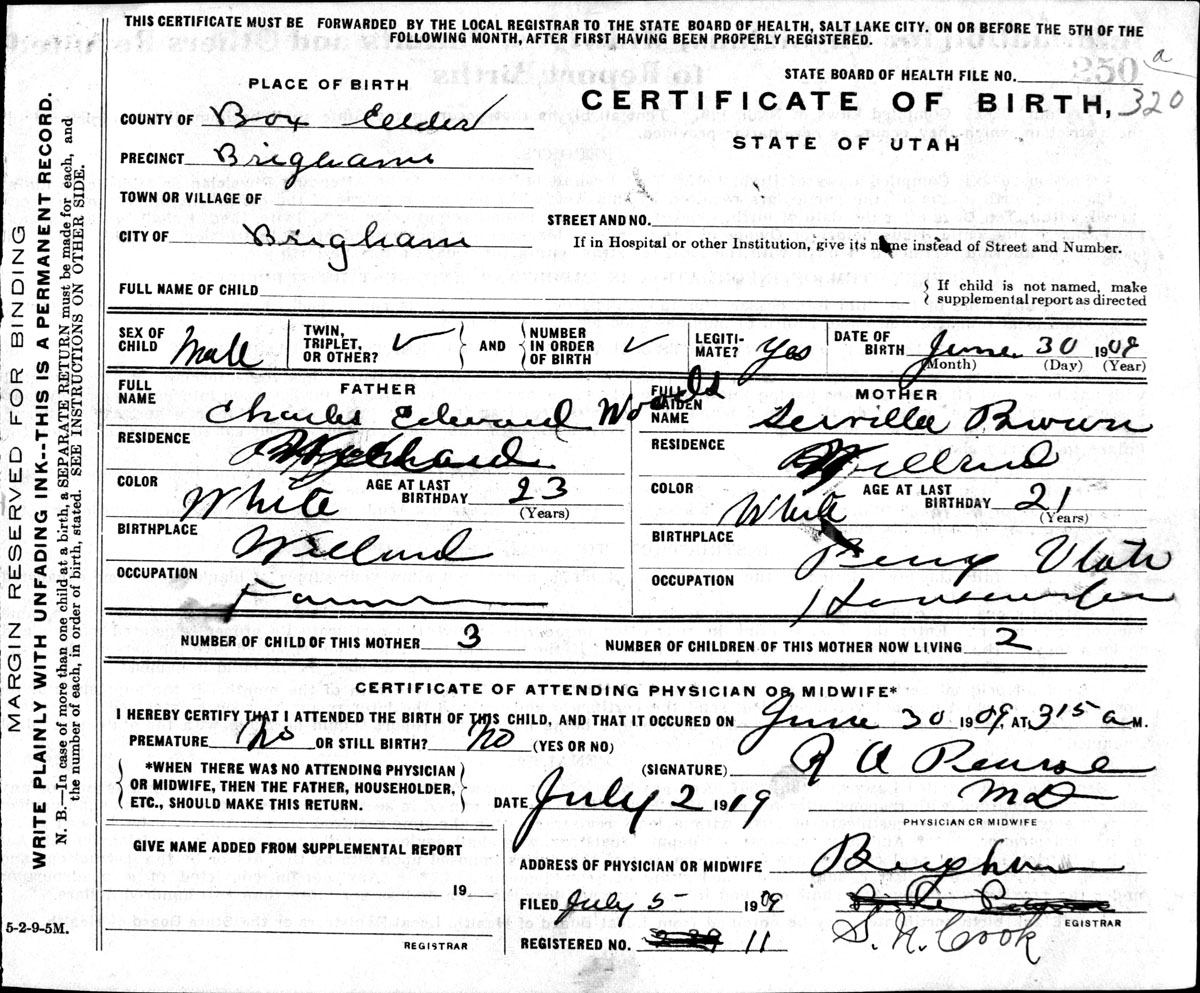 THIS CERTIFICATE MUST BE FORWARDED BY THE LOCAL REGISTRAR TO THE STATE BOARD OF HEALTH, SALT LAKE CITY. ON OR BEFORE THE 5TH OF THE
FOLLOWING MONTH, AFTER FIRST HAVING BEEN PROPERLY REGISTERED.
MARGIN RESERVED FOR BINDING
WRITE PLAINLY WITH UNFADING INK--THIS IS A PERMANENT RECORD.
N. B.—In case of more than one child at a birth, a SEPARATE RETURN must be made for each, and
the number of each, in order of birth, stated. SEE INSTRUCTIONS ON OTHER SIDE.
STATE BOARD OF HEALTH FILE NO.
250
a
320
PLACE OF BIRTH
CERTIFICATE OF BIRTH,
STATE OF UTAH
COUNTY OF Box Elder
PRECINCT Brigham
TOWN OR VILLAGE OF
STREET AND NO.
CITY OF Brigham
If in Hospital or other Institution, give its name instead of Street and Number.
FULL NAME OF CHILD
If child is not named, make
supplemental report as directed
SEX OF CHILD Male
TWIN, TRIPLET, OR OTHER? ✓ AND NUMBER IN ORDER OF BIRTH ✓
LEGITI-MATE? Yes
DATE OF BIRTH June 30 1909
(Month) (Day) (Year)
FATHER
FULL NAME Charles Edward Woods
RESIDENCE Willard
COLOR White AGE AT LAST BIRTHDAY 23
(Years)
BIRTHPLACE Willard
OCCUPATION Farmer
MOTHER
FULL MAIDEN NAME Servilla Brown
RESIDENCE Willard
COLOR White AGE AT LAST BIRTHDAY 21
(Years)
BIRTHPLACE Perry Utah
OCCUPATION Housewife
NUMBER OF CHILD OF THIS MOTHER 3 NUMBER OF CHILDREN OF THIS MOTHER NOW LIVING 2
CERTIFICATE OF ATTENDING PHYSICIAN OR MIDWIFE*
I HEREBY CERTIFY THAT I ATTENDED THE BIRTH OF THIS CHILD, AND THAT IT OCCURED ON June 30 1909, AT 315 a M.
PREMATURE No OR STILL BIRTH? No (YES OR NO)
*WHEN THERE WAS NO ATTENDING PHYSICIAN
OR MIDWIFE, THEN THE FATHER, HOUSEHOLDER,
ETC., SHOULD MAKE THIS RETURN.
(SIGNATURE) R A Pearse
MD
DATE July 2 1919
PHYSICIAN OR MIDWIFE
GIVE NAME ADDED FROM SUPPLEMENTAL REPORT
19
REGISTRAR
ADDRESS OF PHYSICIAN OR MIDWIFE Brigham
FILED July 5 1909
REGISTERED NO. 11
S. N. Cook
EGISTRAR
5-2-9-5M.